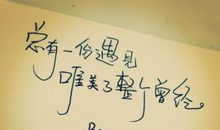 总有一份遇见
唯美了整个曾经。